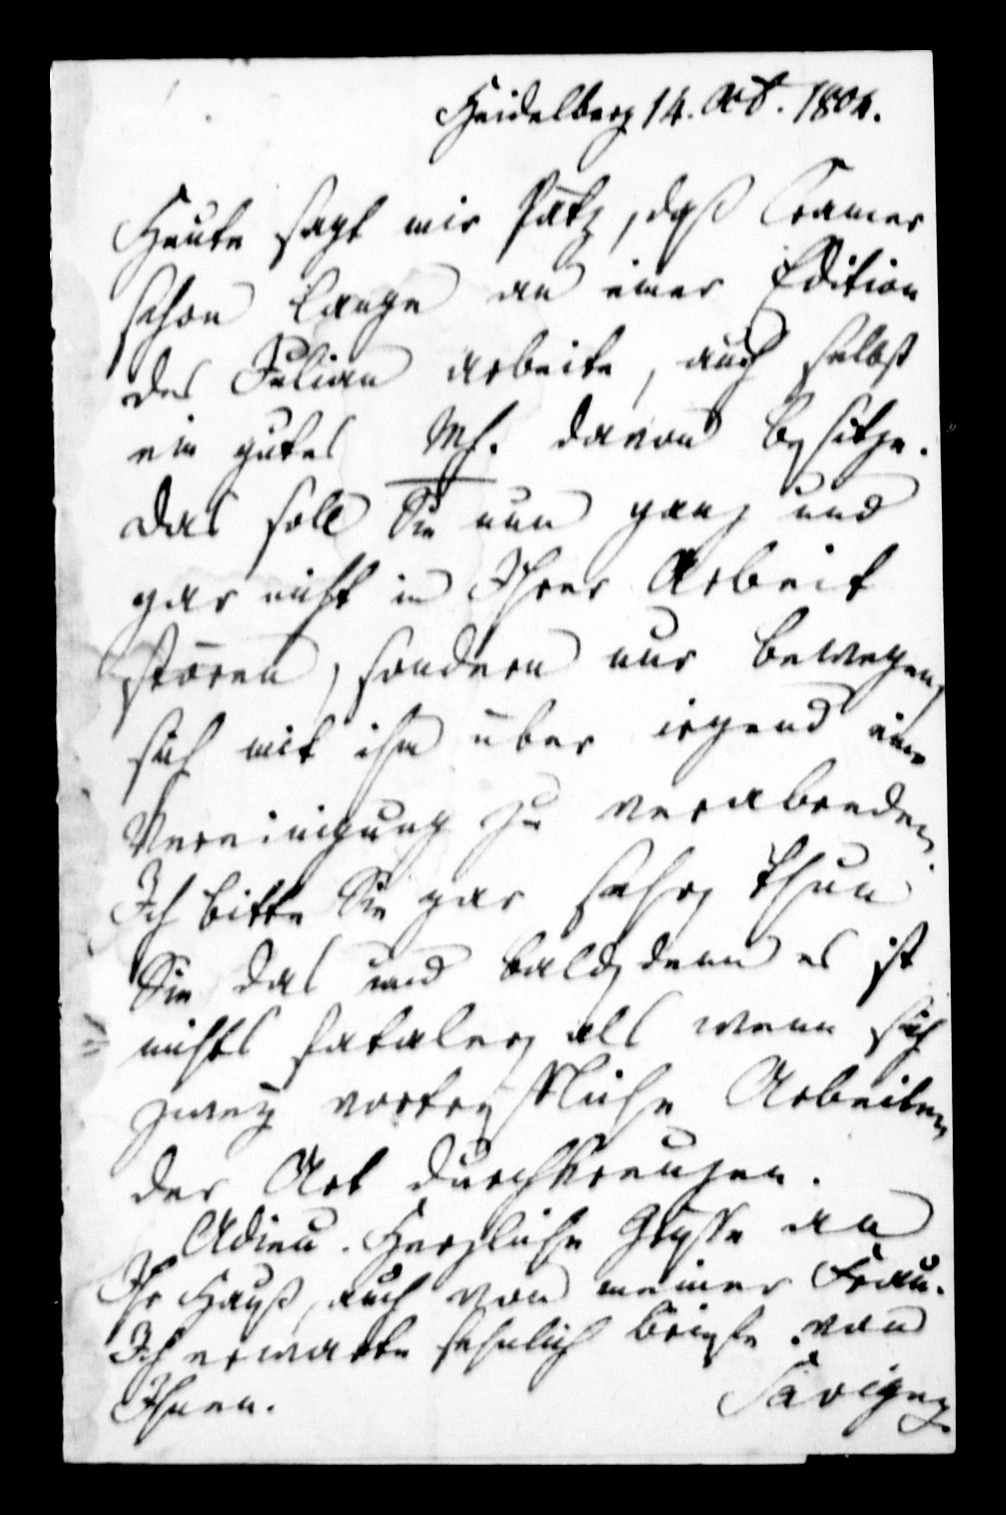 Heidelberg 14. Oct. 1804.
Heute sagt mir Pätz, daß Cramer
schon lange an einer Edition
des Julian arbeite, auch selbst
ein gutes Ms. davon besitze.
Das soll Sie nun ganz und
gar nicht in Ihrer Arbeit
stören, sondern nur bewegen,
sich mit ihm über irgend eine
Vereinigung zu verabreden.
Ich bitte Sie gar sehr, thun
Sie das und bald, denn es ist
nichts fataler, als wenn sich
zwey vortreffliche Arbeiten
der Art durchkreuzen.
Adieu. Herzliche Grüße an
Ihr Hauß, auch von meiner Frau.
Ich erwarte sehnlich Briefe von
Ihnen. Savigny